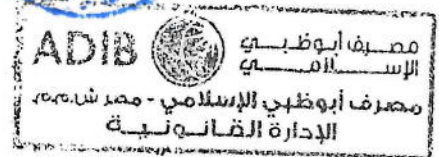 ADIB مصرف أبوظبي
الإسلامي
مصرف أبوظبي الإسلامي - مصر ش.م.م.
الإدارة القانونية